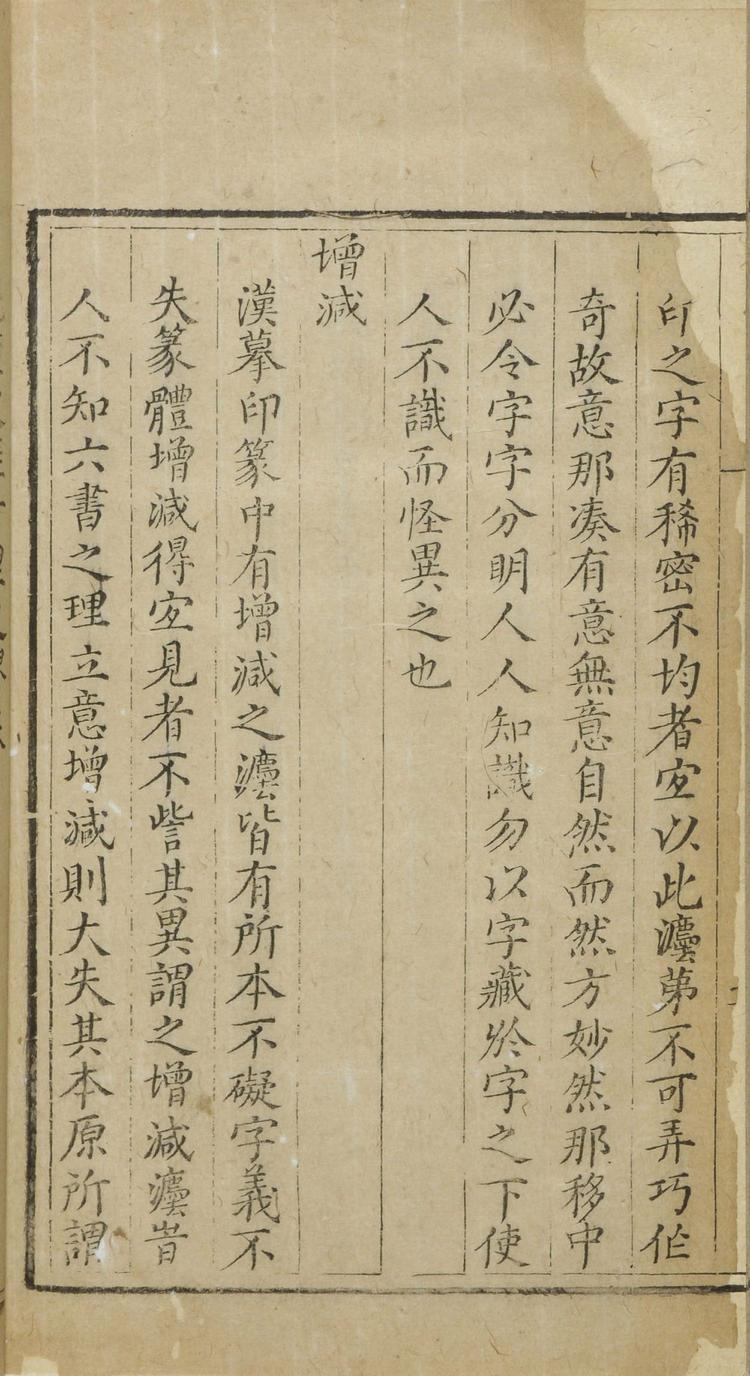 印之字有稀密不均者宜以此灋苐不可弄巧作
奇故意那凑有意無意自然而然方妙然那移中
必令字字分明人人知識勿以字藏於字之下使
人不識而怪異之也
增減
漢摹印篆中有增減之灋皆有所本不礙字義不
失篆體增減得宜見者不訾其異謂之增減灋昔
人不知六書之理立意增減則大失其本原所謂